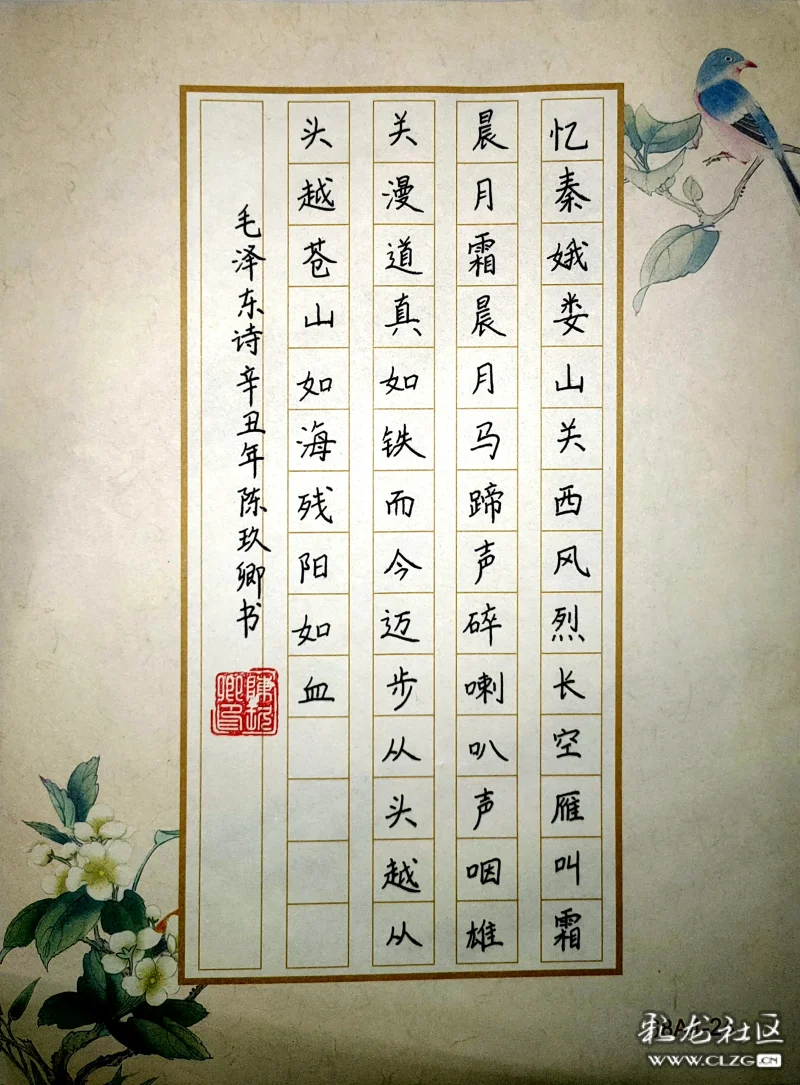 忆秦娥娄山关西风烈长空雁叫霜
晨月霜晨月马蹄声碎喇叭声咽雄
关漫道真如铁而今迈步从头越从
头越苍山如海残阳如血
毛泽东诗辛丑年陈玖卿书
陳玖卿印
彩龙社区
WWW.CLZG.CN